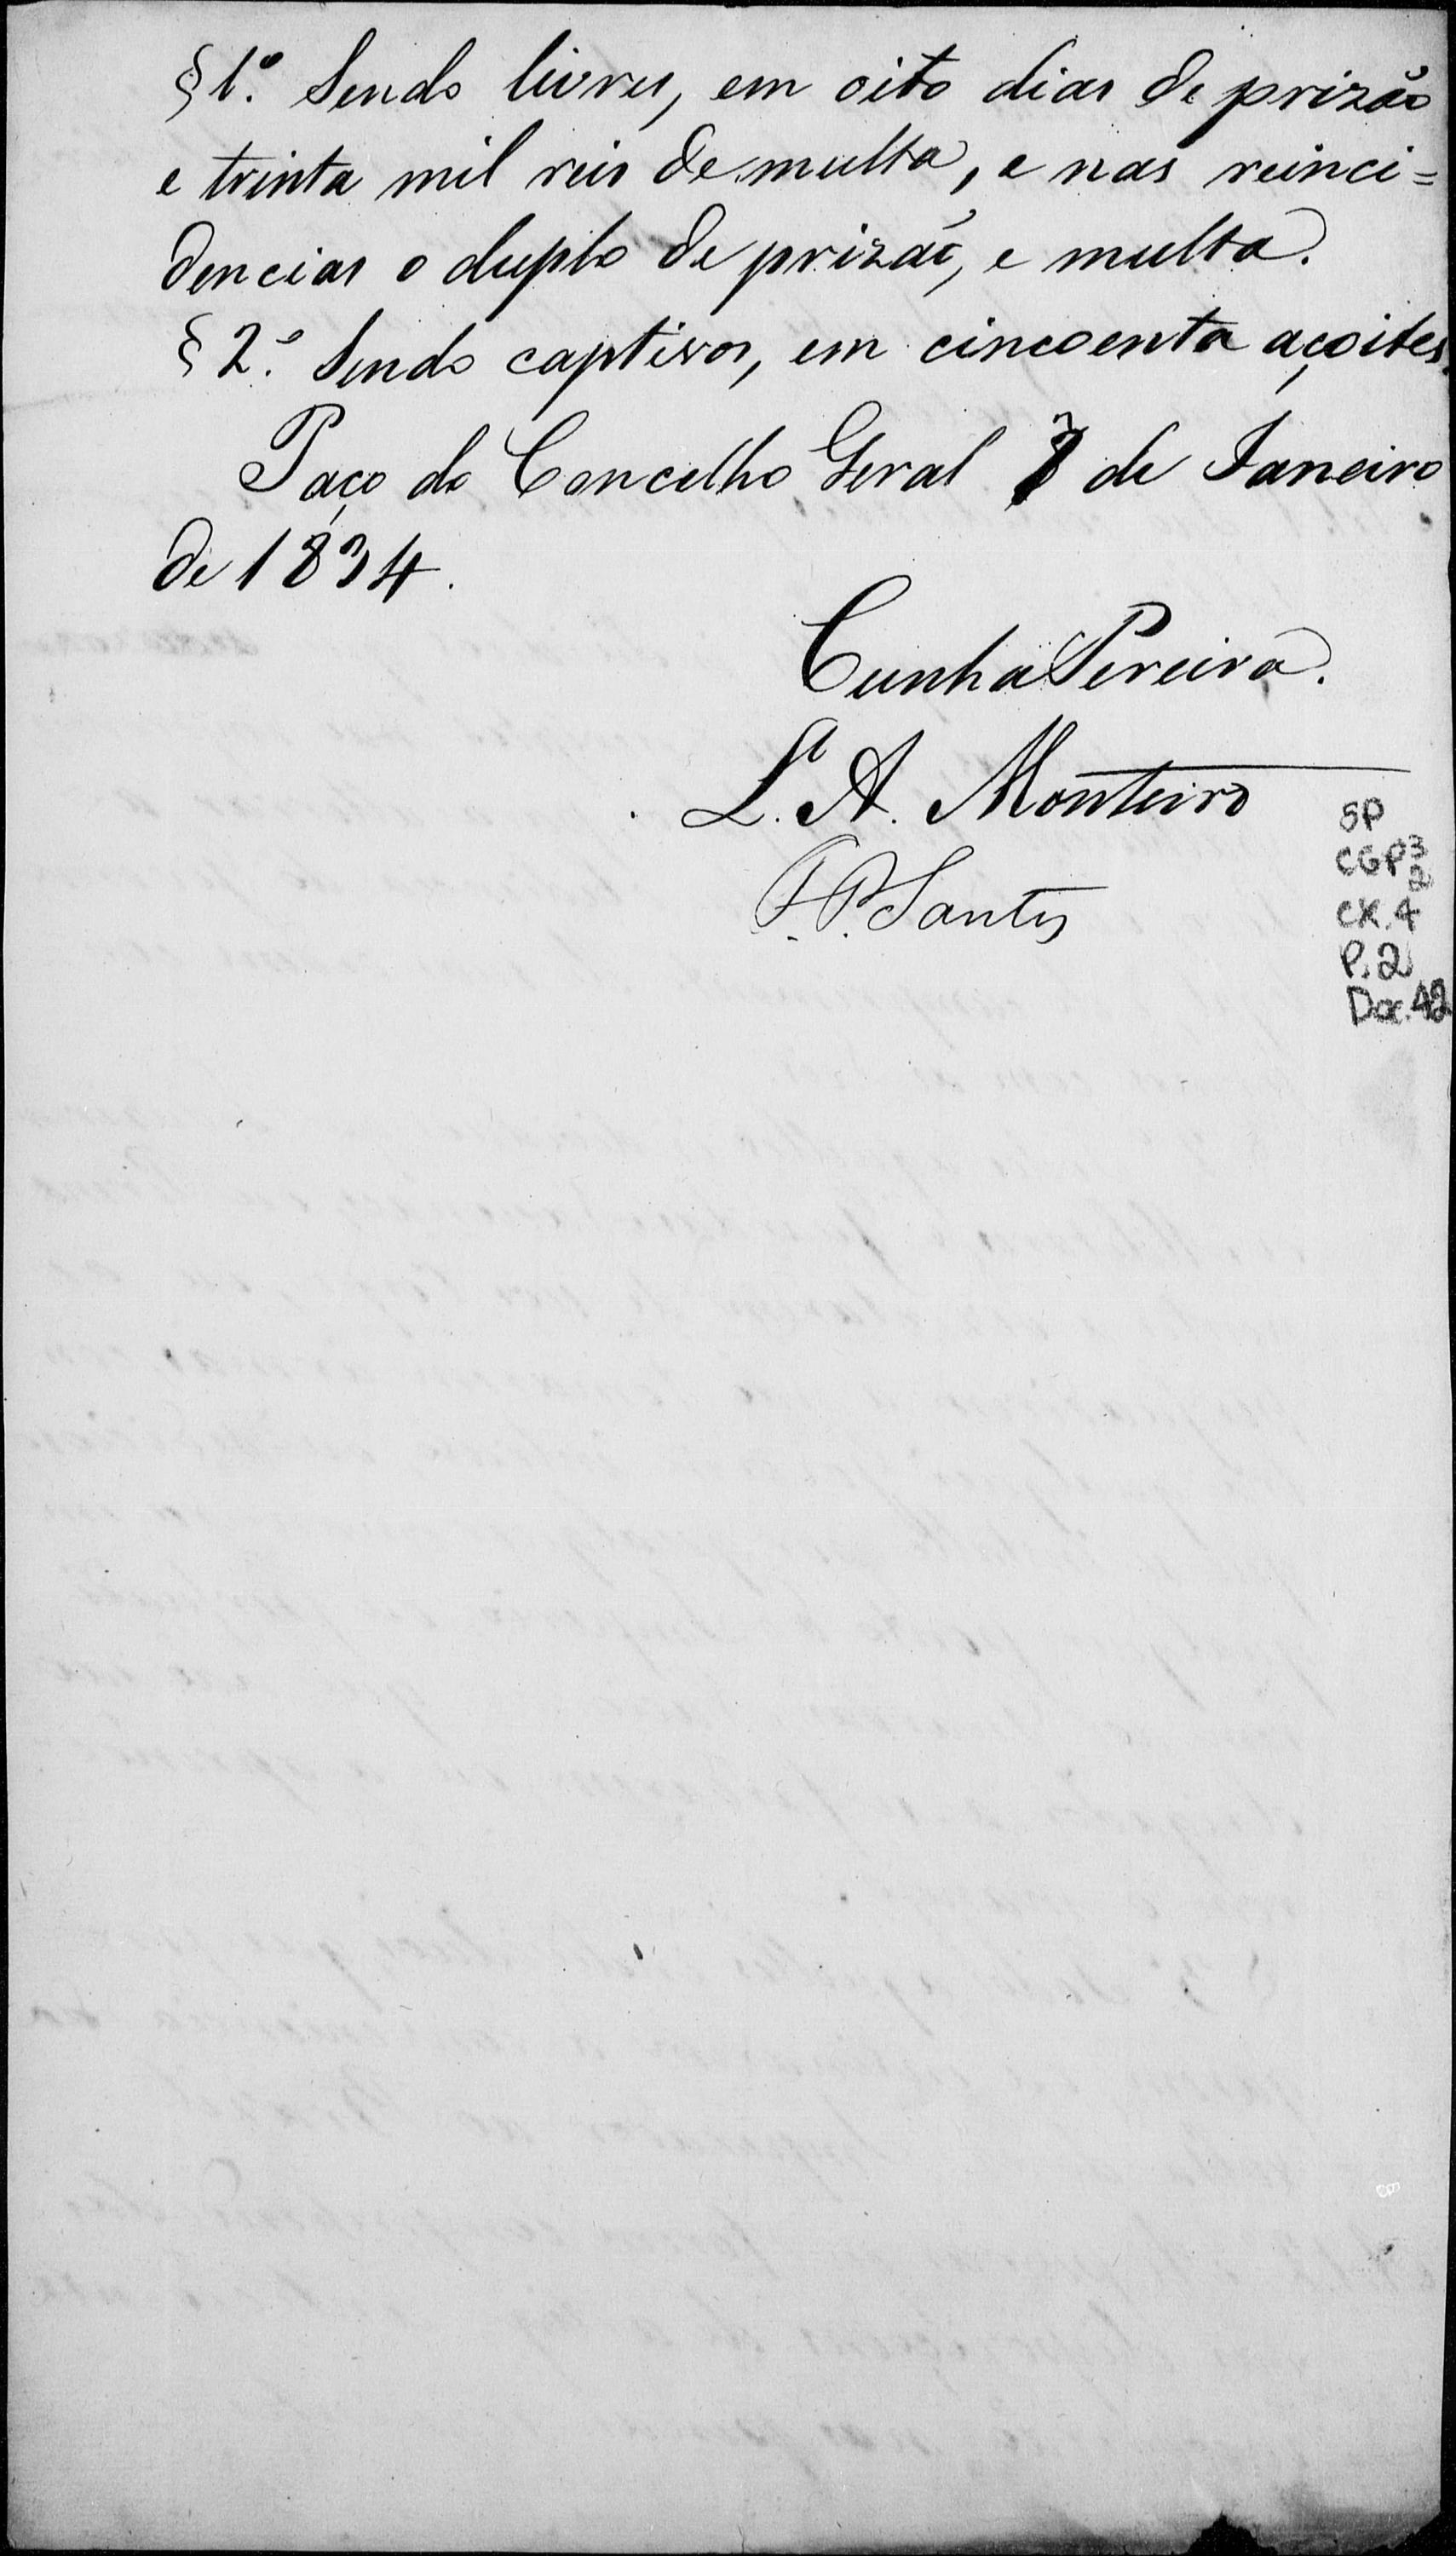 § 1.º Sendo livres, em oito dias de prizão
e trinta mil reis de multa, e nas reinci=
dencias o duplo de prizaõ, e multa.
§ 2.º Sendo captivos, em cincoenta açoites.
Paço do Concelho Geral 7 de Janeiro
de 1834.
Cunha Pereira.
L. A. Monteiro
F. P. Santos
SP
CGP 3
2
CX. 4
P. 2
Doc. 42